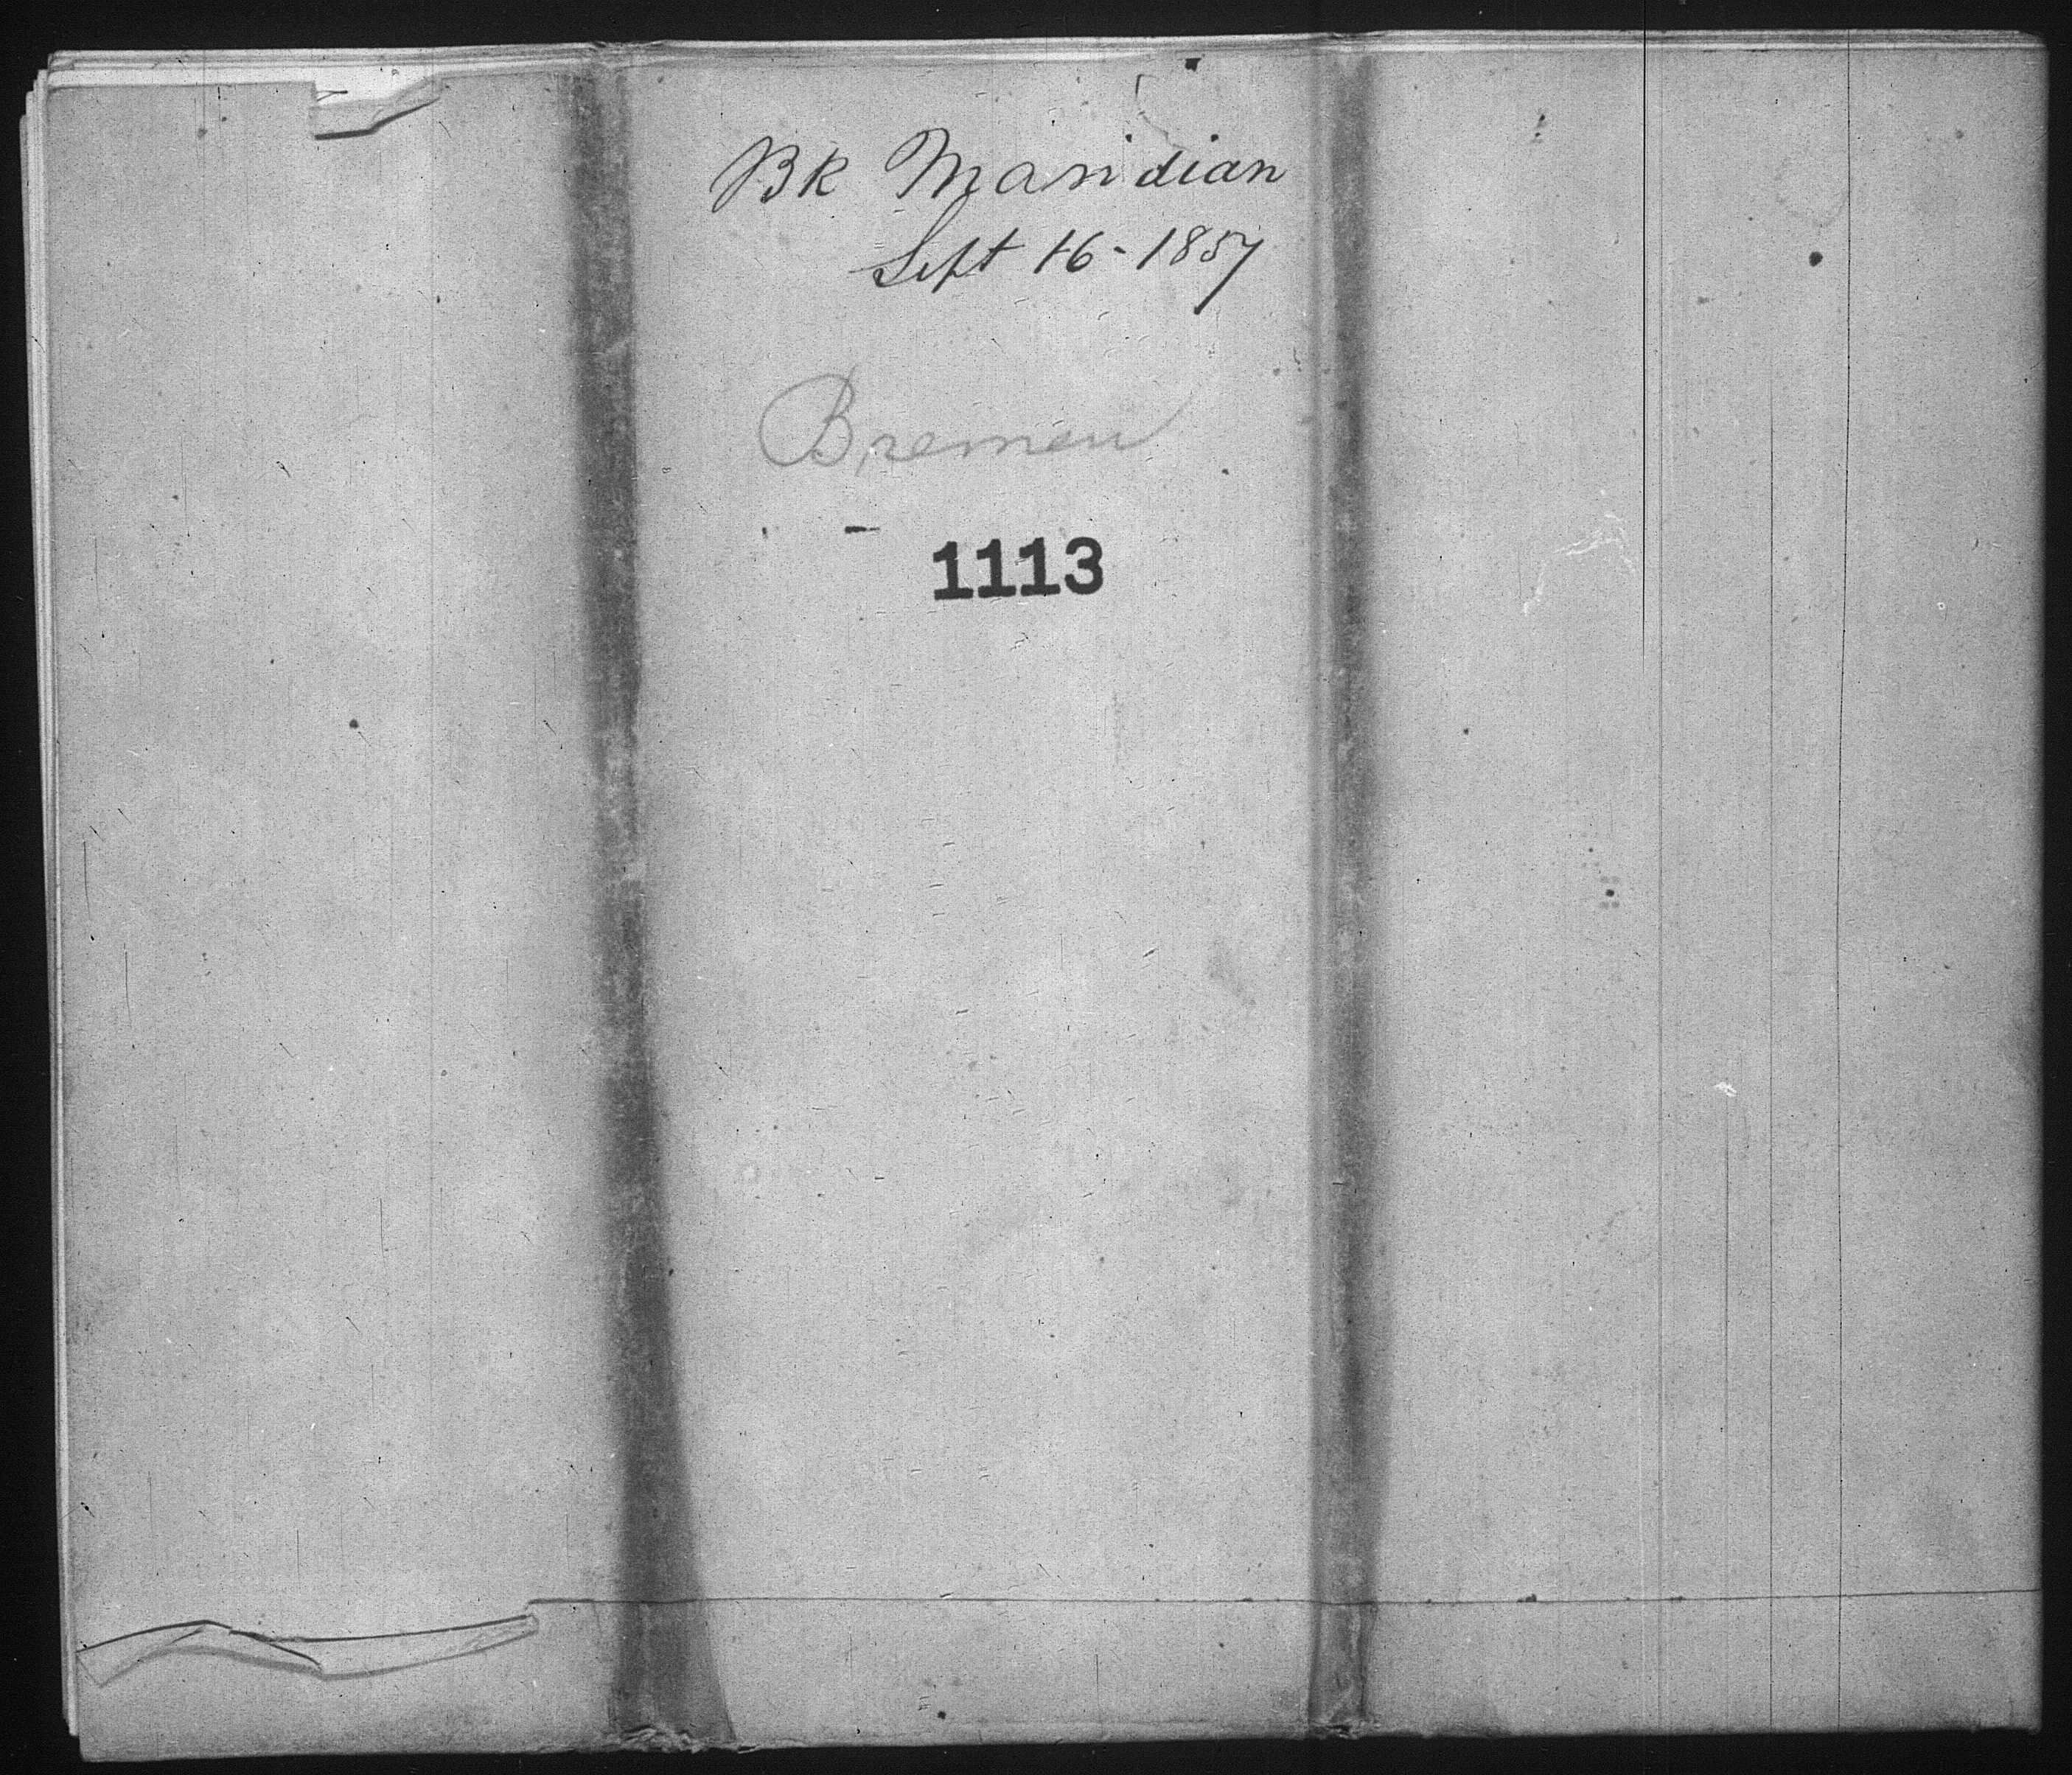 Bk Maridian
Sept 16-1857
Bremen
1113